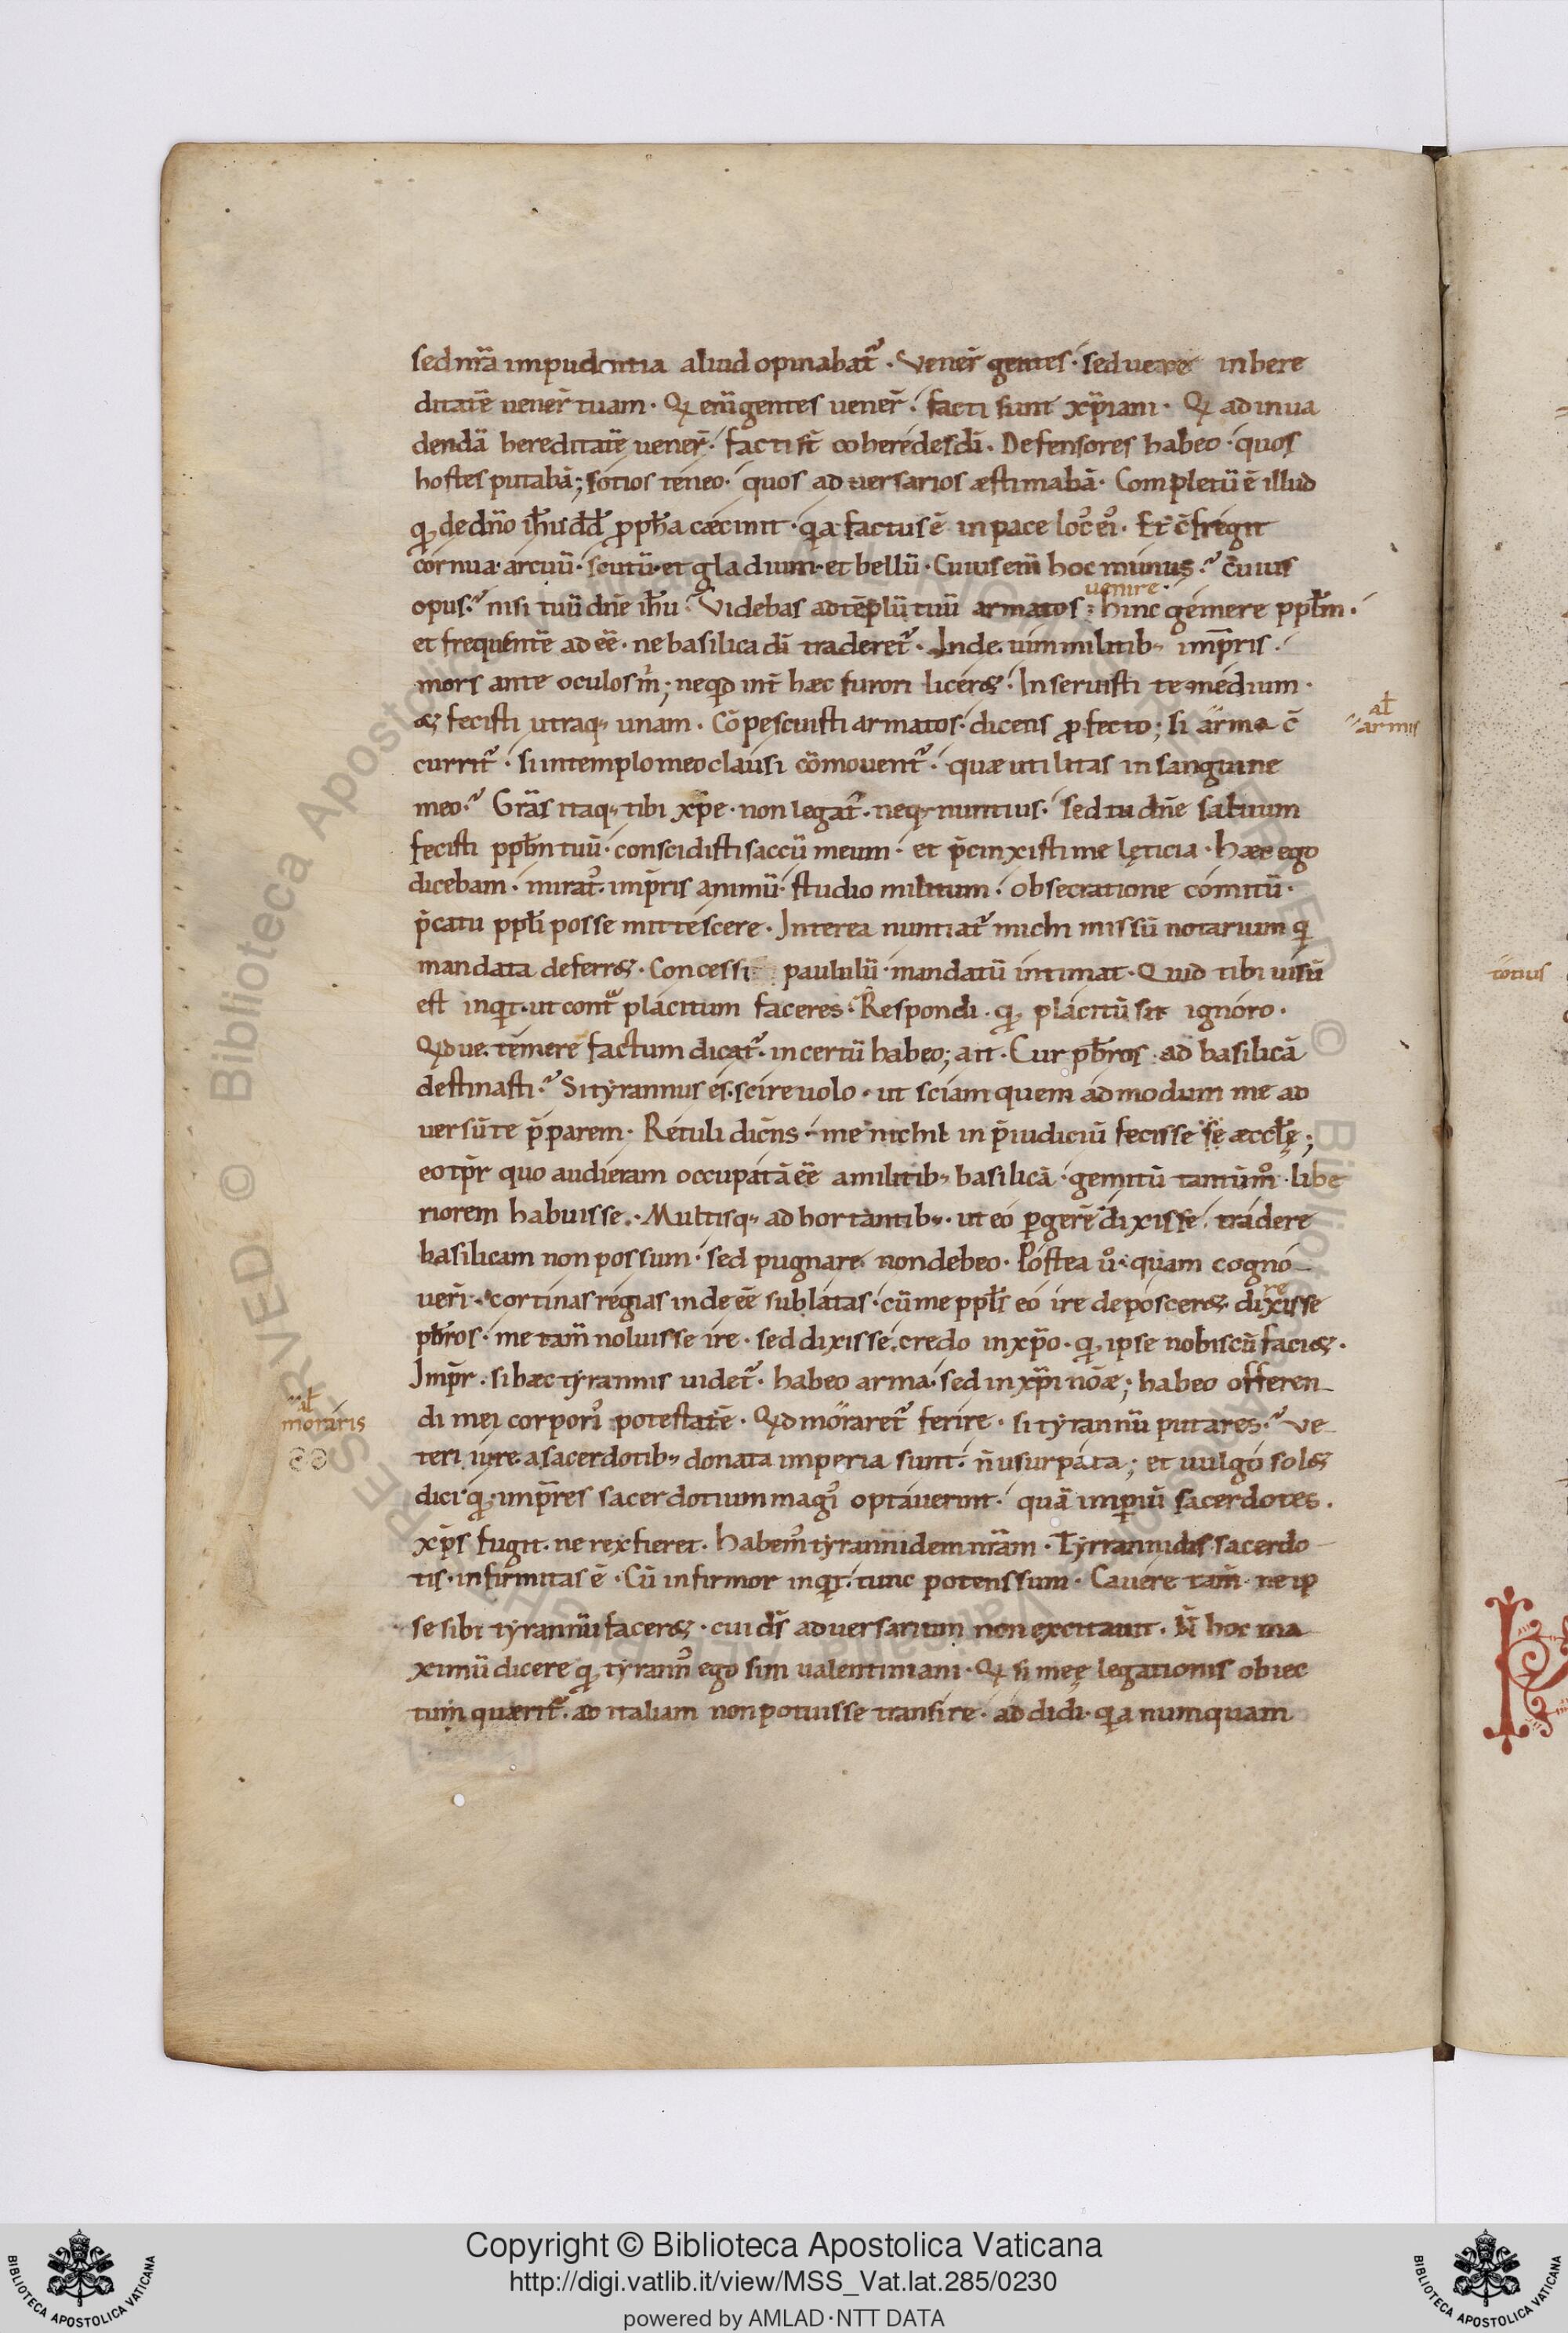 sed nr̄a impudentia aliud opinabat᷑ · Vener̄ gentes · sed uere in here
ditatē uener̄ tuam · Qi enī gentes uener̄ · facti sunt xp̄iani · Qi ad inua
dendā hereditatē uener̄ · facti st̄ coheredes dī · Defensores habeo · quos
hostes putabā; sotios teneo · quos adversarios æstimabā · Completū ē illud
qđ de dn̄o ih̄u dd̄ ꝓph̄a cæcinit · qa factus ē in pace loc᷒ ei᷒ · Et c̄fregit
cornua arcuū · scutū · et gladium · et bellū · Cuius enī hoc munus · cuius
opus · nisi tuū dn̄e ih̄u · Videbas ad tēplū tuū armatos uenire · hinc gemere ppl̄m ·
et frequentē adeē · ne basilica dī traderet᷑ · Inde uim militib; imp̄ris ·
mors ante oculos m̄; neqd int̄ hæc furori liceret · Inseruisti te medium ·
et fecisti utraq; unam · Cōpescuisti armatos · dicens ꝓfecto; si arma c̄
currit᷑ · si in templo meo clausi cōmouent᷑ · quæ utilitas in sanguine
meo · Grās itaq; tibi xp̄e · non legat᷒ · neq; nuntius · sed tu dn̄e saluum
fecisti ppl̄m tuū · conscidisti saccū meum · et p̄cinxisti me lęticia · Hæc ego
dicebam · mirat᷒ imp̄ris animū · studio militum · obsecratione comitū ·
p̄catu ppl̄i posse mittescere · Interea nuntiat᷑ michi missū notarium qi
mandata deferret · Concessi paululū · mandatū intimat · Quid tibi uisū
est inqt · ut contᵃ placitum faceres · Respondi · qđ placitū sit ignoro ·
Qdue temere factum dicat᷑ · incertū habeo; ait · Cur pb̄ros ad basilicā
destinasti · Si tyrannus es · scire uolo · ut sciam quem admodum me ad
uersū te p̄parem · Retuli dicens · me nichil in p̄iudiciū fecisse sę æccl̄ę;
eo tp̄r quo audieram occupatā eē a militib; basilicā · gemitū tantūm᷒ libe
riorem habuisse · Multisq; adhortantib; · ut eo ꝑgerē dixisse · tradere
basilicam non possum · sed pugnare non debeo · Postea ů quam cogno
ueri · cortinas regias inde eē sublatas · cū me ppl̄s eo ire deposceret dixisse re
pb̄ros · me tam̄ noluisse ire · sed dixisse · credo in xp̄o · qđ ipse nobiscū faciet ·
Imp̄r · si hæc tyrannis uidet᷑ · habeo arma · sed in xp̄i nōæ; habeo offeren
di mei corpori᷒ potestatē · Qd moraret᷑ ferire · si tyrannū putares · Ve
teri iure a sacerdotib; donata imperia sunt · n̄ usurpata; et uulgo solet
dici qđ imp̄res sacerdotium magi᷒ optauerunt · quā imꝑiū sacerdotes ·
xp̄s fugit · ne rex fieret · Habem᷒ tyrannidem nr̄am · Tyrannidis sacerdo
tis · infirmitas ē · Cū infirmor inqt · tunc potens sum · Cauere tam̄ · ne ip
se sibi tyrannū faceret · cui dš aduersarium non excitauit · N̄ hoc ma
ximū dicere qđ tyrann᷒ ego sim ualentiniani · Qi si meę legationis obiec
tum quærit᷑ · ad italiam non potuisse transire · addidi · qa numquam
al̄
armis
al̄
moraris
totius
Copyright © Biblioteca Apostolica Vaticana
http://digi.vatlib.it/view/MSS_Vat.lat.285/0230
powered by AMLAD·NTT DATA
BIBLIOTECA APOSTOLICA VATICANA
BIBLIOTECA APOSTOLICA VATICANA